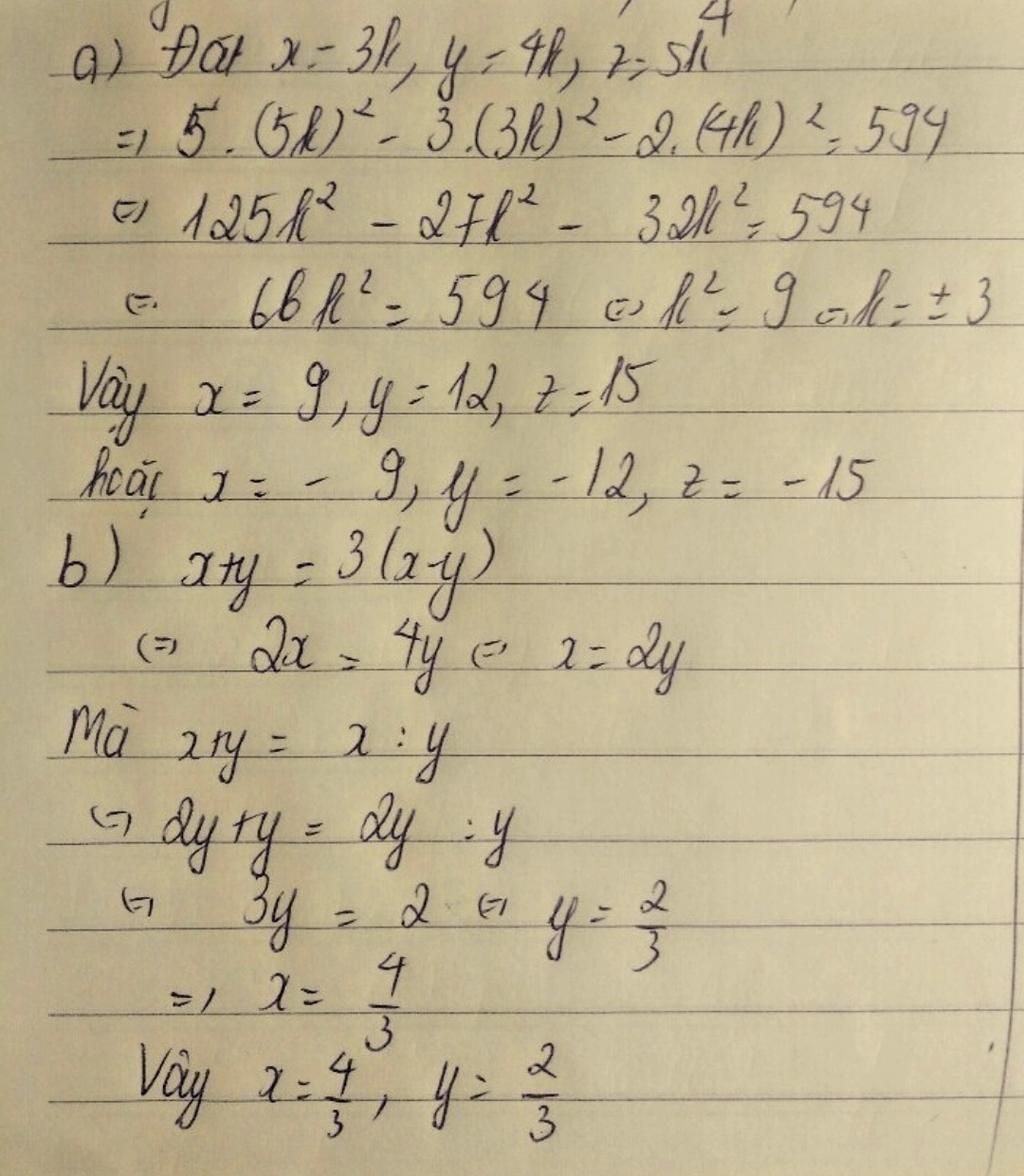 a) Đặt x = 3k, y = 4k, z = 5k
=> 5.(5k)² - 3.(3k)² - 2.(4k)² = 594
<=> 125k² - 27k² - 32k² = 594
<=> 66k² = 594 <=> k² = 9 <=> k = ± 3
Vậy x = 9, y = 12, z = 15
hoặc x = - 9, y = -12, z = -15
b) x+y = 3(x-y)
<=> 2x = 4y <=> x = 2y
Mà x+y = x : y
<=> 2y+y = 2y : y
<=> 3y = 2 <=> y = 2/3
=> x = 4/3
Vậy x = 4/3, y = 2/3